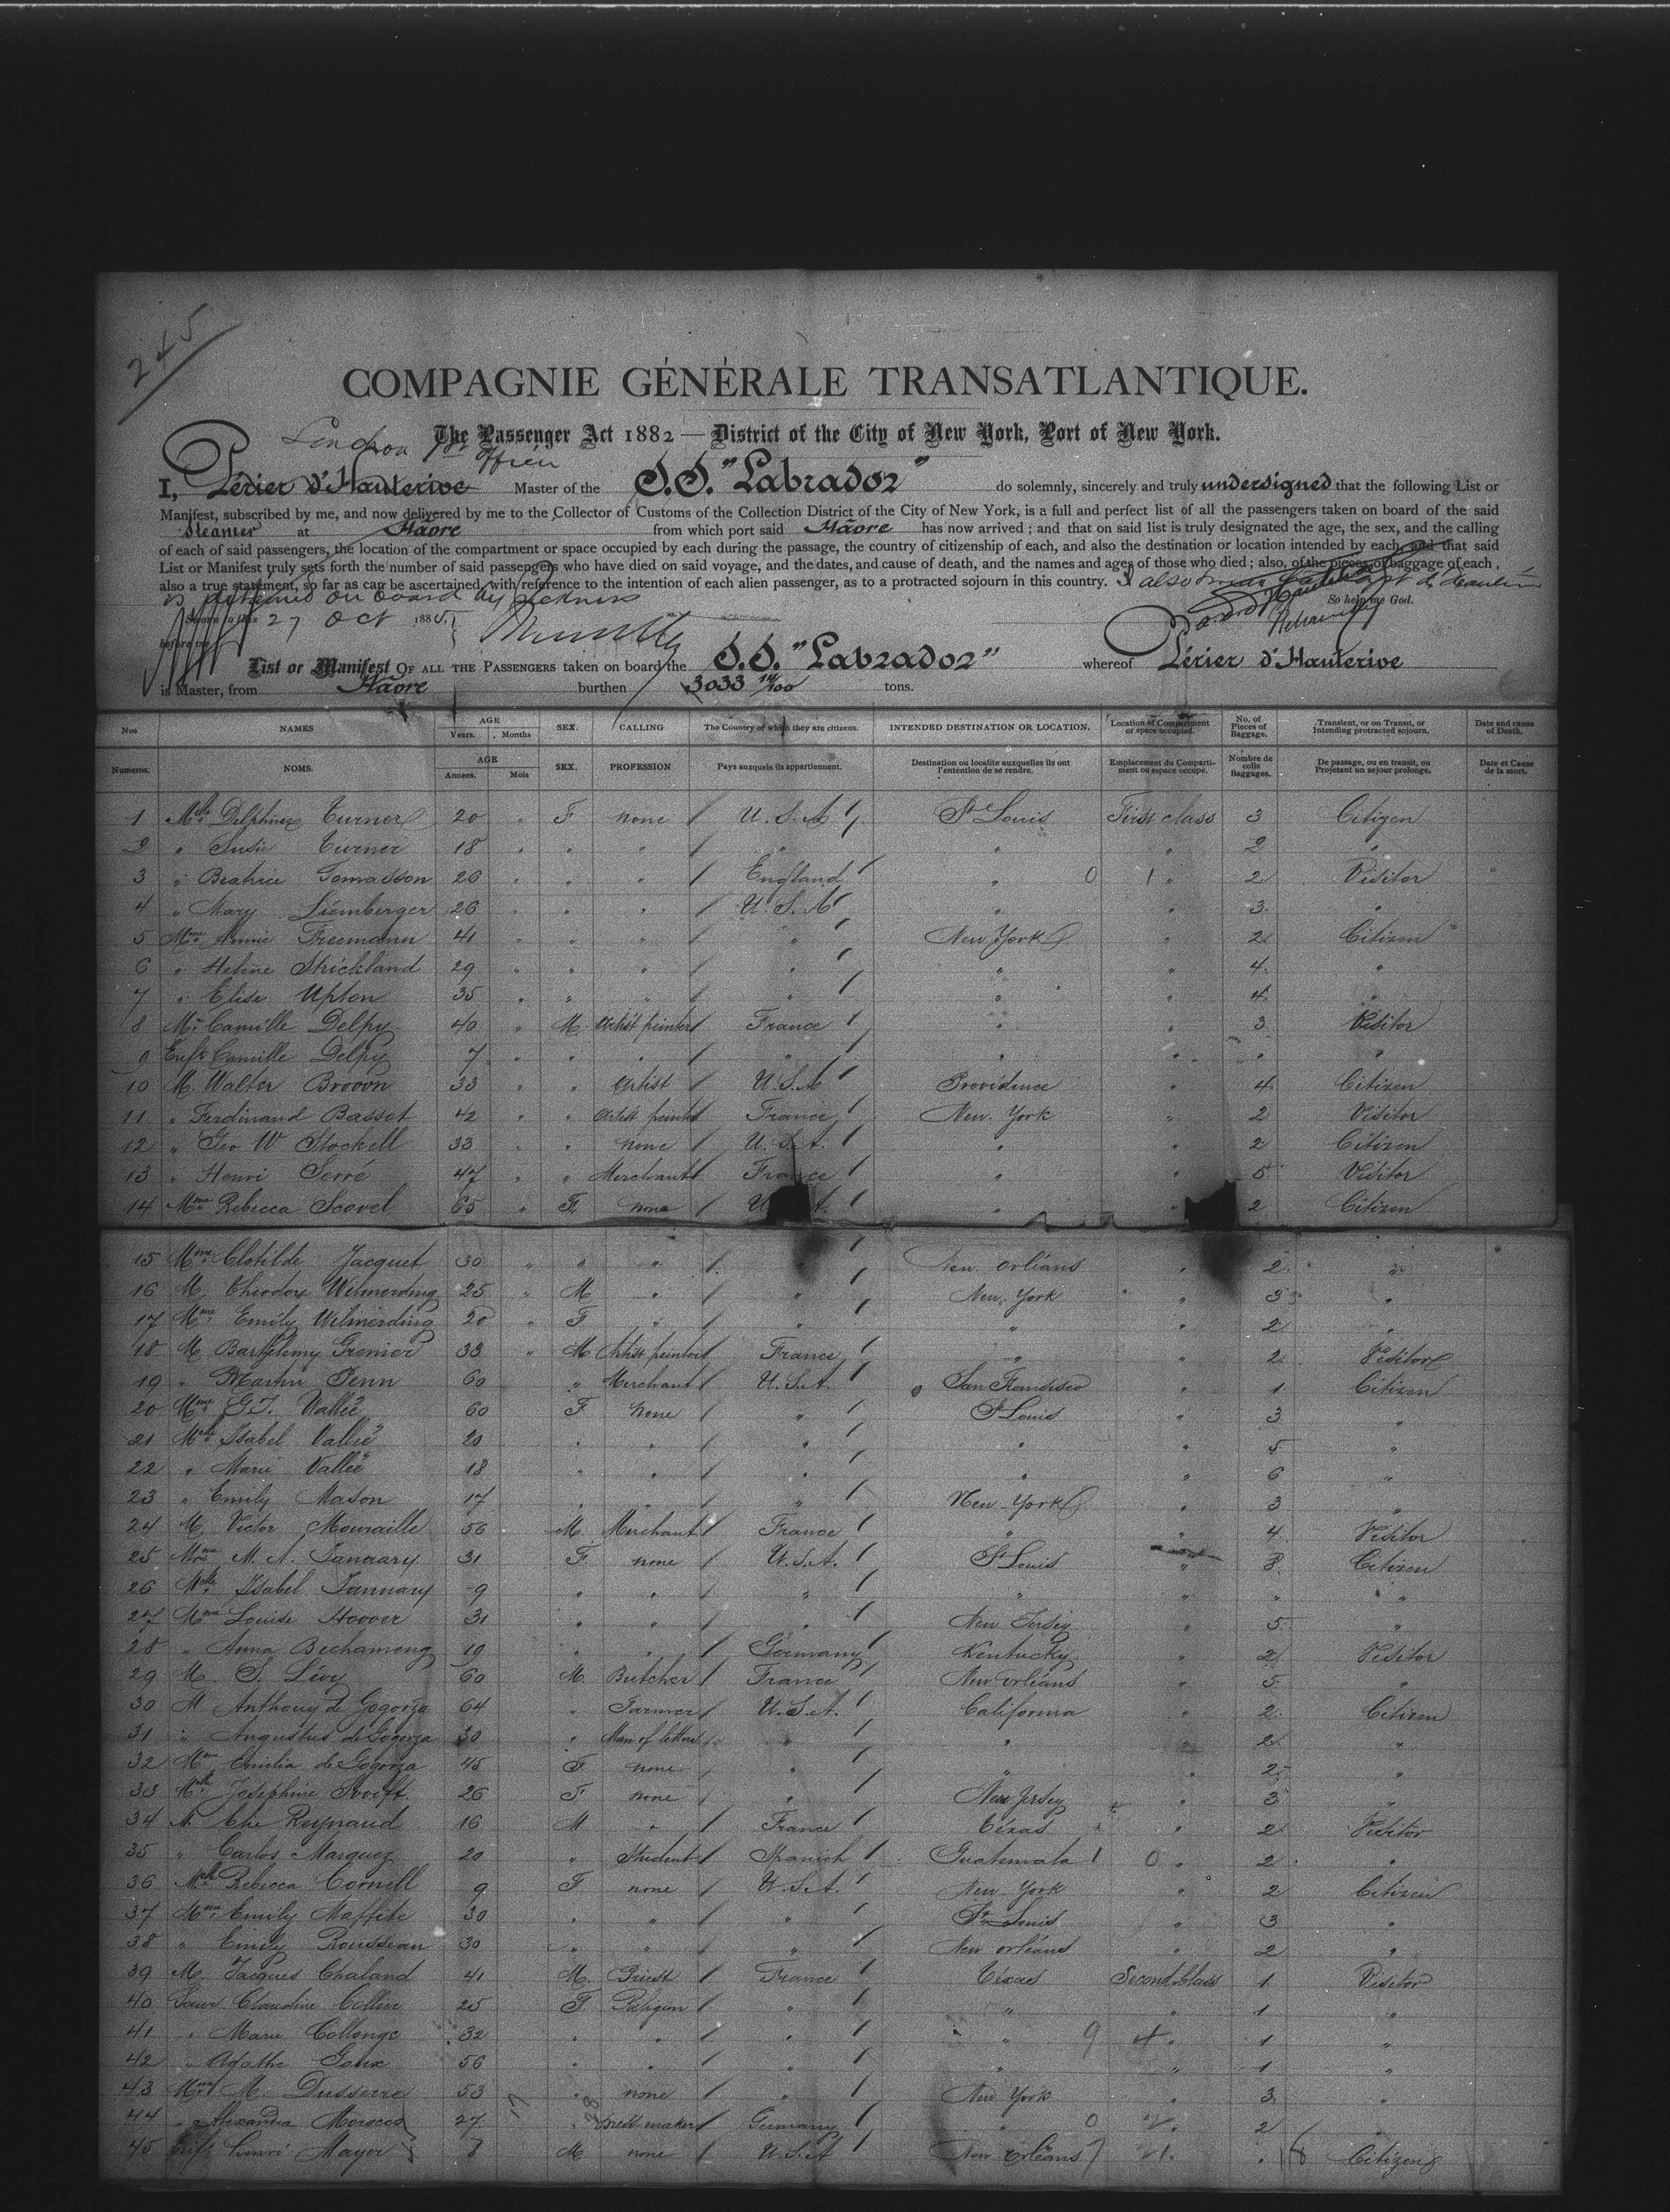 245
COMPAGNIE GÉNÉRALE TRANSATLANTIQUE.
The Passenger Act 1882 — District of the City of New York, Port of New York.
I, Périer d'Hauterive Master of the S.S. "Labrador" do solemnly, sincerely and truly undersigned that the following List or
Manifest, subscribed by me, and now delivered by me to the Collector of Customs of the Collection District of the City of New York, is a full and perfect list of all the passengers taken on board of the said
Steamer at Hâvre from which port said Hâvre has now arrived ; and that on said list is truly designated the age, the sex, and the calling
of each of said passengers, the location of the compartment or space occupied by each during the passage, the country of citizenship of each, and also the destination or location intended by each, and that said
List or Manifest truly sets forth the number of said passengers who have died on said voyage, and the dates, and cause of death, and the names and ages of those who died ; also, of the pieces of baggage of each ,
also a true statement, so far as can be ascertained, with reference to the intention of each alien passenger, as to a protracted sojourn in this country. I also
is detained on board by sickness So help me God.
Sworn to this 27 Oct 1885
before me
List or Manifest OF ALL THE PASSENGERS taken on board the S.S. "Labrador" whereof Périer d'Hauterive
is Master, from Hâvre burthen 3033 14/100 tons.
Nos NAMES AGE Years. Months SEX. CALLING The Country of which they are citizens. INTENDED DESTINATION OR LOCATION. Location of Compartment or space occupied. No. of Pieces of Baggage. Transient, or on Transit, or Intending protracted sojourn. Date and cause of Death.
Numeros. NOMS. AGE Annees. Mois SEX. PROFESSION Pays auxquels ils appartiennent. Destination ou localite auxquelles ils ont l'entention de se rendre. Emplacement du Compartiment ou espace occupe. Nombre de colis Baggages. De passage, ou en transit, ou Projetant un sejour prolonge. Date et Cause de la mort.
1 Melle Delphine Turner 20 " F none U.S.A St Louis First class 3 Citizen
2 " Susie Turner 18 " " " " " " 2 "
3 " Beatrice Gomasson 26 " " " England " 0 1 " 2 Visitor
4 " Mary Liemberger 26 " " " U.S.A " " 3 "
5 Mme Annie Freemann 41 " " " " New York " 2 Citizen
6 " Helène Strickland 29 " " " " " " 4 "
7 " Elise Upton 35 " " " " " " 4 "
8 Mr Camille Delpy 40 " M. Artist peinter France " " 3 Visitor
9 Enft Camille Delpy 7 " " " " " " " "
10 M. Walter Brown 33 " " Artist U.S.A Providence " 4 Citizen
11 " Ferdinand Basset 42 " " Artist peinter France New. York " 2 Visitor
12 " Geo W Stockell 33 " " none U.S.A. " " 2 Citizen
13 " Henri Serré 47 " " Merchant France " " 5 Visitor
14 Mme Rebecca Scovel 65 " F. none " " 2 Citizen
15 Mme Clotilde Jacquet 30 " " " " New. Orléans " 2 "
16 M. Theodore Wilmerding 25 " M " " New. York " 3 "
17 Mme Emily Wilmerding 20 " F " " " " 2 "
18 M Barthélemy Grenier 33 " M Artist peinter France " " 2 Visitor
19 " Martin Penn 60 " Merchant U.S.A. San Francisco " 1 Citizen
20 Mme G.J. Vallée 60 F none " St Louis " 3 "
21 Melle Isabel Vallée 20 " " " " " 5 "
22 " Marie Vallée 18 " " " " " 6 "
23 " Emily Mason 17 " " " New York " 3 "
24 M. Victor Mouraille 56 M. Merchant France " " 4 Visitor
25 Mme M. A. January 31 F. none U.S.A. St Louis " 3 Citizen
26 Melle Isabel January 9 " " " " " " "
27 Mme Louise Hoover 31 " " " New Jersey " 5 "
28 " Anna Bechameng 19 " " Germany Kentucky " 2 Visitor
29 M. S. Lévy 60 M. Butcher France New Orléans " 5 "
30 M Anthony de Gogorza 64 " Farmer U.S.A. California " 2 Citizen
31 " Augustus de Gogorza 30 " Man of letters " " " 2 "
32 Mme Emilia de Gogorza 45 F none " " " 2 "
33 Melle Josephine Swift 26 F none " New Jersey " 3 "
34 M. Reynaud 16 M " France Téxas " 2 Visitor
35 " Carlos Marquez 20 " Student Spanish Guatemala 1 0 " 2 "
36 Melle Rebecca Cornell 9 F none U.S.A. New York " 2 Citizen
37 Mme Emily Maffitt 30 " " " St Louis " 3 "
38 " Emily Rousseau 30 " " " New Orléans " 2 "
39 M. Jacques Chaland 41 M. Priest France Téxas Second Class 1 Visitor
40 Sœur Claudine Collier 25 F Religion " " " 1 "
41 " Marie Collonge 32 " " " " 9 4 " 1 "
42 " Agathe Goux 56 " " " " " 1 "
43 Mme M. Dusserre 53 " none " New York " 3 "
44 " Alexandra Morocco 27 " Dressmaker Germany " 0 " 2
45 Enft Henri Mayer 8 M none U.S.A New Orléans " Citizen